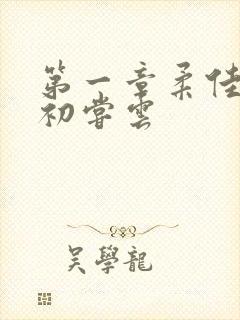 第一章柔佳
初嘗雲
吳學龍